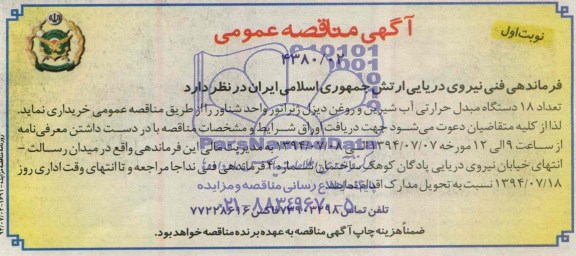 نوبت اول
آگهی مناقصه عمومی
۴۳۸۰/۰۲
فرماندهی فنی نیروی دریایی ارتش جمهوری اسلامی ایران در نظر دارد
تعداد ۱۸ دستگاه مبدل حرارتی آب شیرین و روغن دیزل ژنراتور واحد شناور را از طریق مناقصه عمومی خریداری نماید.
لذا از کلیه متقاضیان دعوت می‌شود جهت دریافت اوراق شرایط و مشخصات مناقصه با در دست داشتن معرفی‌نامه
از ساعت ۹ الی ۱۲ مورخه ۱۳۹۴/۰۷/۰۷ این فرماندهی واقع در میدان رسالت -
انتهای خیابان نیروی دریایی پادگان کوهک ساختمان شماره ۴ فرماندهی فنی نداجا مراجعه و تا انتهای وقت اداری روز
۱۳۹۴/۰۷/۱۸ نسبت به تحویل مدارک اقدام نمایند.
پایگاه اطلاع رسانی مناقصه و مزایده
تلفن تماس ۷۳۹۰۳۲۹۸ فاکس ۷۷۲۲۸۶۱۶
۰۲۱-۸۸۳۴۹۶۷۰-۵
ضمناً هزینه چاپ آگهی مناقصه به عهده برنده مناقصه خواهد بود.